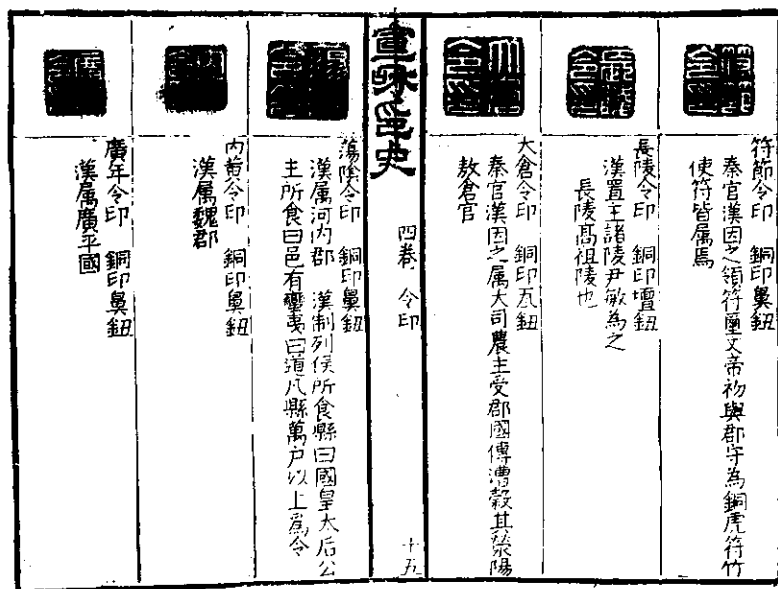 符節令印　銅印鼻鈕
秦官漢因之領符璽文帝初與郡守為銅虎符竹
使符皆属焉
長陵令印　銅印壇鈕
漢置主諸陵尹敏為之
長陵髙祖陵也
大倉令印　銅印瓦鈕
秦官漢因之属大司農主受郡國傳漕穀其滎陽
敖倉官
宣和印史
四卷　令印
十五
蕩陰令印　銅印鼻鈕
漢属河内郡　漢制列侯所食縣曰國皇太后公
主所食曰邑有蠻夷曰道凡縣萬户以上為令
内黄令印　銅印鼻鈕
漢属魏郡
廣年令印　銅印鼻鈕
漢属廣平國